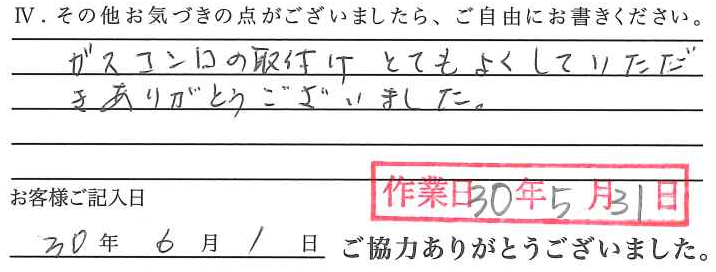 Ⅳ．その他お気づきの点がございましたら、ご自由にお書きください。
ガスコンロの取付け とてもよくしていただ
きありがとうございました。
お客様ご記入日
作業日30年5月31日
30年 6月 1日 ご協力ありがとうございました。